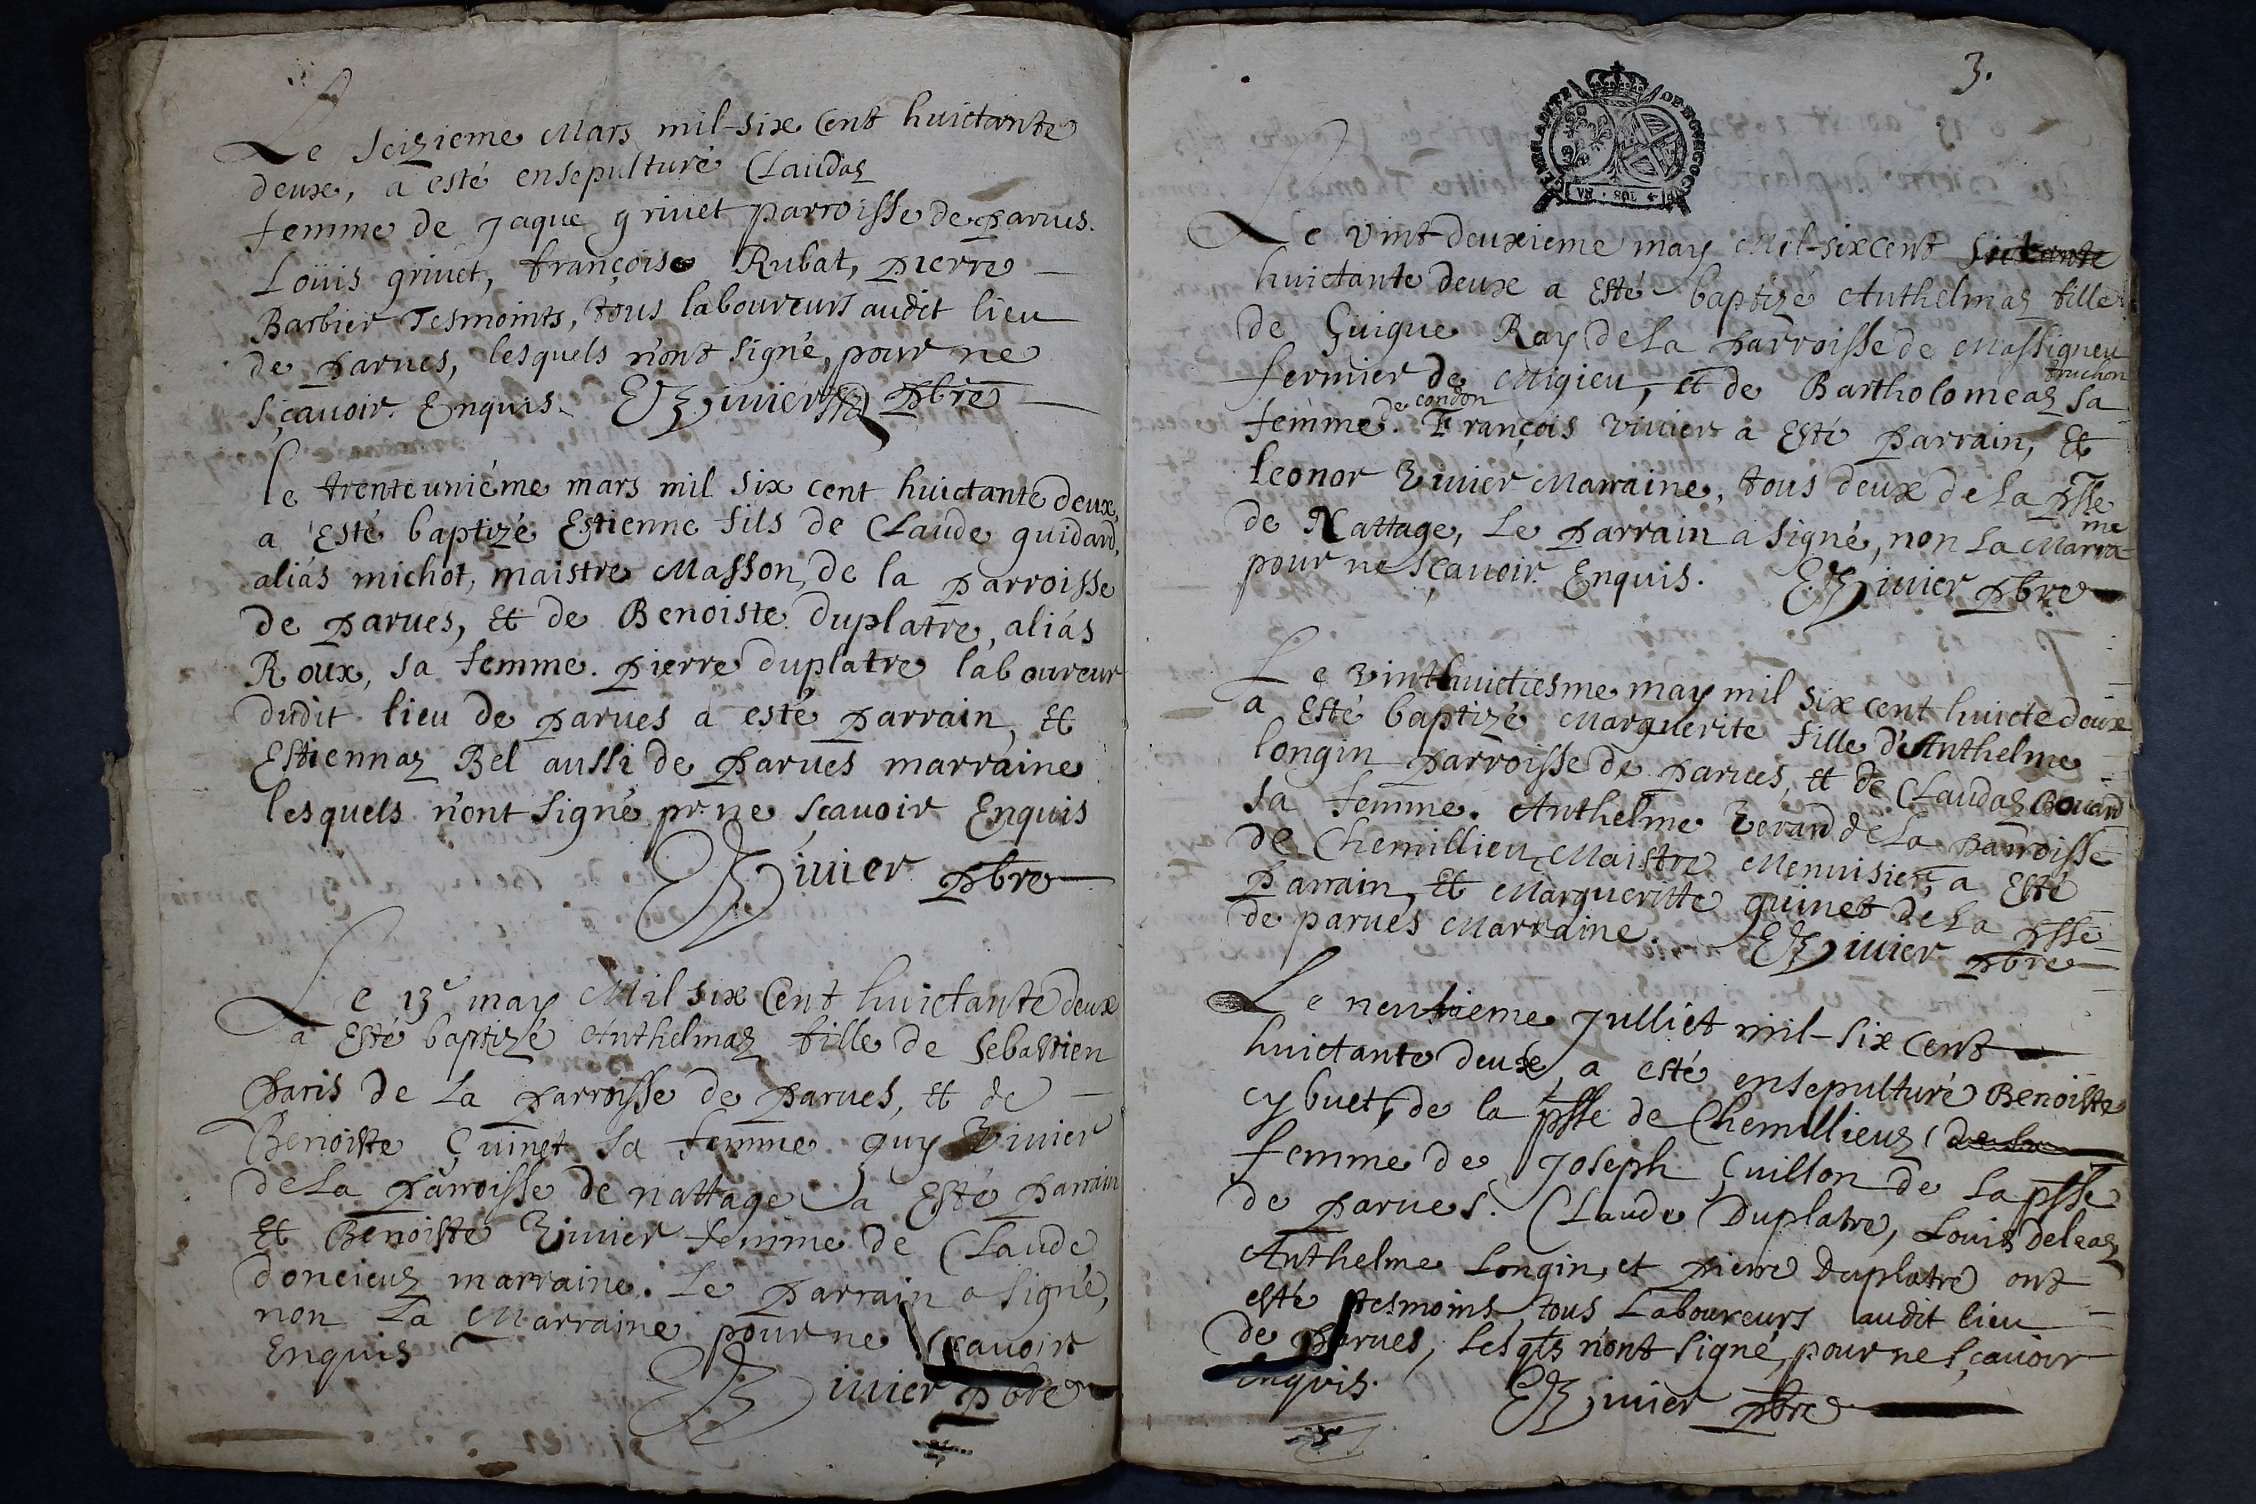 Le seizieme Mars mil-six cent huictante
deux, a esté ensepulturé Claudaz
femme de Jaque grivet parroisse de parves.
Loüis grivet, françoise Rubat, pierre
Barbier Tesmoints, tous laboureurs audit lieu
de parves, lesquels n'ont signé, pour ne
sçavoir. Enquis. Vivier pbre
le trente uniéme mars mil six cent huictante deux,
a esté baptizé Estienne fils de Claude guidard,
aliás michot, maistre Masson, de la parroisse
de parves, et de Benoiste duplatre, aliás
Roux, sa femme. pierre duplatre laboureur
dudit lieu de parves a esté parrain, et
Estiennaz Bel aussi de parves marraine
lesquels n'ont signé pr. ne sçavoir Enquis
Vivier pbre
Le 13e may Mil six Cent huictante deux
a Esté baptizé Anthelmaz fille de Sebastien
paris de La parroisse de parves, et de
Benoiste Guinet sa femme. guy Vivier
de La parroisse de nattage a Esté parrain
Et Benoiste Vivier femme de Claude
doncieuz marraine. Le parrain a signé,
non La Marraine pour ne sçavoir
Enquis Vivier pbre
3.
GENERALITE DE BOURGOGNE
VN · SOL · 4 · D
Le vint deuxieme may Mil-six cent sixtante
huictante deux a Esté baptizé Anthelmaz fille
de Guigue Ray de La parroisse de Massigneu
truchon
fermier de Migieu, et de Bartholomeaz sa
de condon
femme. François vivier a Esté parrain, Et
leonor Vivier Marraine, tous deux de La psse
de Nattage, Le parrain a signé, non La Marra
ine
pour ne sçavoir. Enquis. Vivier pbre
Le vinthuictiesme may mil six cent huicte deux
a Esté baptizé Marguerite fille d'Anthelme
longin parroisse de parves, et de Claudaz Bouard
sa femme. Anthelme Berard de La parroisse
de Chemillieu, Maistre Menuisier, a Esté
parrain, Et Margueritte guinet de La psse
de parves Marraine. Vivier pbre
Le neufvieme Julliet mil-six cent
huictante deux, a esté ensepulturé Benoiste
cybuet, de la psse de Chemillieuz, de la
femme de Joseph Guillon de La psse
de parves. Claude Duplatre, Louis Deleaz
Anthelme Longin, et pierre duplatre ont
esté tesmoins, tous Laboureurs audit lieu
de parves, Lesqts n'ont signé, pour ne sçavoir
enquis. Vivier pbre